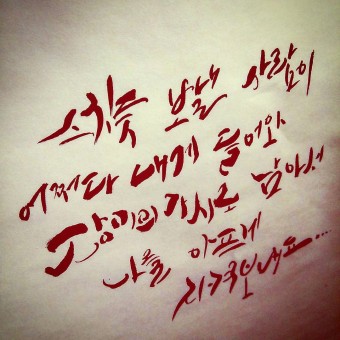 스치듯 보낼 사람이
어쩌다 내게 들어와
장미의 가시로 남아서
나를 아프게
지켜보네요...